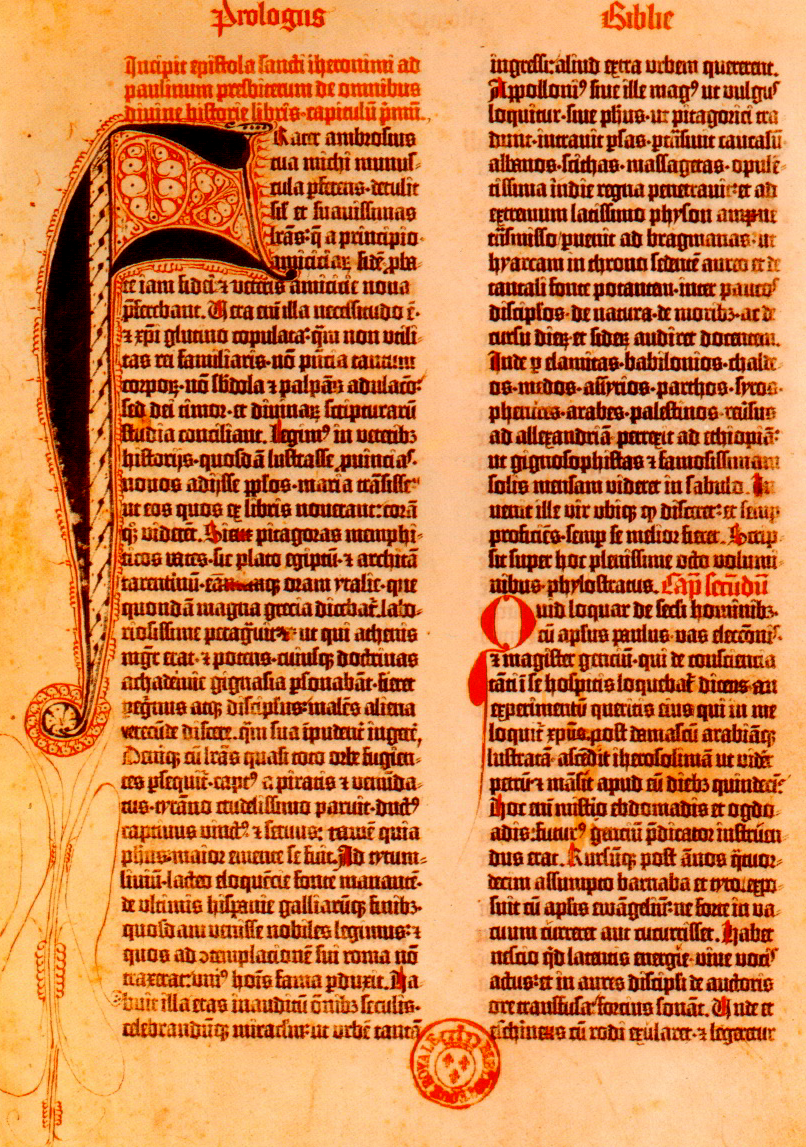 Prologus
Biblie
Incipit epistola sancti iheronimi ad
paulinum presbiterum de omnibus
divine historie libris·capitulū pͥmū.
Frater ambrosius
tua michi munus-
cula pferens·detulit
sil̄ et suavissimas
lrās:q̄ a principio
amiciciaꝝ fidē pba-
te iam fidei ⁊ veteris amicicie nova
pferebant. Vera eni illa necessitudo ē·
⁊ xp̄i glutino copulata:qm̄ non utili-
tas rei familiaris·nō pn̄cia tantum
corpoꝝ·nō sb̄dola ⁊ palpās adulacō·
sed dei timor·et divinaꝝ scripturarū
studia conciliant. Legimꝰ in veteribꝫ
historijs·quosdā lustrasse ꝓuīciaˢ·
novos adijsse pplos·maria trāsisse·
ut eos quos ex libris noverant:corā
qꝫ viderēt. Sicut pitagoras memphi-
ticos vates·sic plato egiptū·⁊ architā
tarentinū· oram ytalie·que
quondā magna grecia dicebat̄·labo-
riosissime peragͣvit·ut qui athenis
mgr̄ erat·⁊ potens·cuiusqꝫ doctrinas
achademie gignasia psonabāt·fieret
pegͥnus atqꝫ discipl̄us:malēs aliena
verecūde discere·qm̄ sua īpudent̄ īngere,
Deniqꝫ cū lrās quasi toto orbe fugien-
tes pseqͥtur·captꝰ a piratis ⁊ venūda-
tus·tyrāno crudelissimo paruit·ductꝰ
captivus vinctꝰ ⁊ servus: tamē quia
phūs·maior emente se fuit. Ad tytum-
liviū·lacteo eloquēcie fonte manantē·
de ultimis hispanie galliarūqꝫ finibꝫ·
quosdam venisse nobiles legimus:⁊
quos ad ɔtemplacionē sui roma nō
traxerat:uniꝰ hoīs fama pduxit. Ha-
buit illa etas inauditū ōnibꝫ seculis·
celebrandūqꝫ miraclm̄:ut urbē tantā
ingressi:aliud extra urbem quererent.
Appolloniꝰ sive ille magꝰ ut vulgꝰ
loquitur·sive phūs·ut pitagorici tra-
dunt·intravit psas·ptrāsivit caucasū
albanos·scithas·massagetas·opulē-
tissima indie regna penetravit:et ad
extremum latissimo physon amne
trāsmisso pvenit ad bragmanas·ut
hyarcam in throno sedentē aureo et de
tantali fonte potantem·inter paucoˢ
discip̄los·de natura·de moribꝫ·ac de
cursu dieꝝ et sideꝝ audiret docentem.
Inde ꝑ elamitas·babilonios·chalde-
os·medos·assyrios·parthos·syros·
phenices·arabes·palestinos·reūsus
ad allexandriā perrexit ad ethiopiā:
ut gignosophistas ⁊ famosissimam
solis mensam videret in sabulo. In
venit ille vir ubiqꝫ qͦ disceret:et semp
proficiēs·semp se melior fieret. Scrip-
sit super hoc plenissime octo volumi-
nibus·phylostratus. Capͫ secūdū
Quid loquar de secli hominibꝫ·
cū apl̄us paulus·vas eleccōis·
⁊ magister genciū·qui de consciencia
tāti ī se hospitis loquebat̄ dicens·an
experimentū queritis eius qui in me
loquit̄ xp̄us·post damascū arabiāqꝫ
lustratā·ascēdit iherosolimā ut vidēt
petrū·⁊ māsit apud eū diebꝫ quindecī:
Hoc eni mist̄io ebdomadis et ogdo-
adis:futurꝰ genciū p̄dicator instruen-
dus erat. Rursūqꝫ post ānos qͣtuor-
decim assumpto barnaba et tyto·expo-
suit cū apl̄is ewāgeliū:ne forte in va-
cuum curreret aut cucurrisset. Habet
nescio qͥd latentis energie·vive vociˢ
actus:et in aures discip̄li de auctoris
ore transfusa:forcius sonāt. Unde et
eschines cū rodi exularet·⁊ legeretur